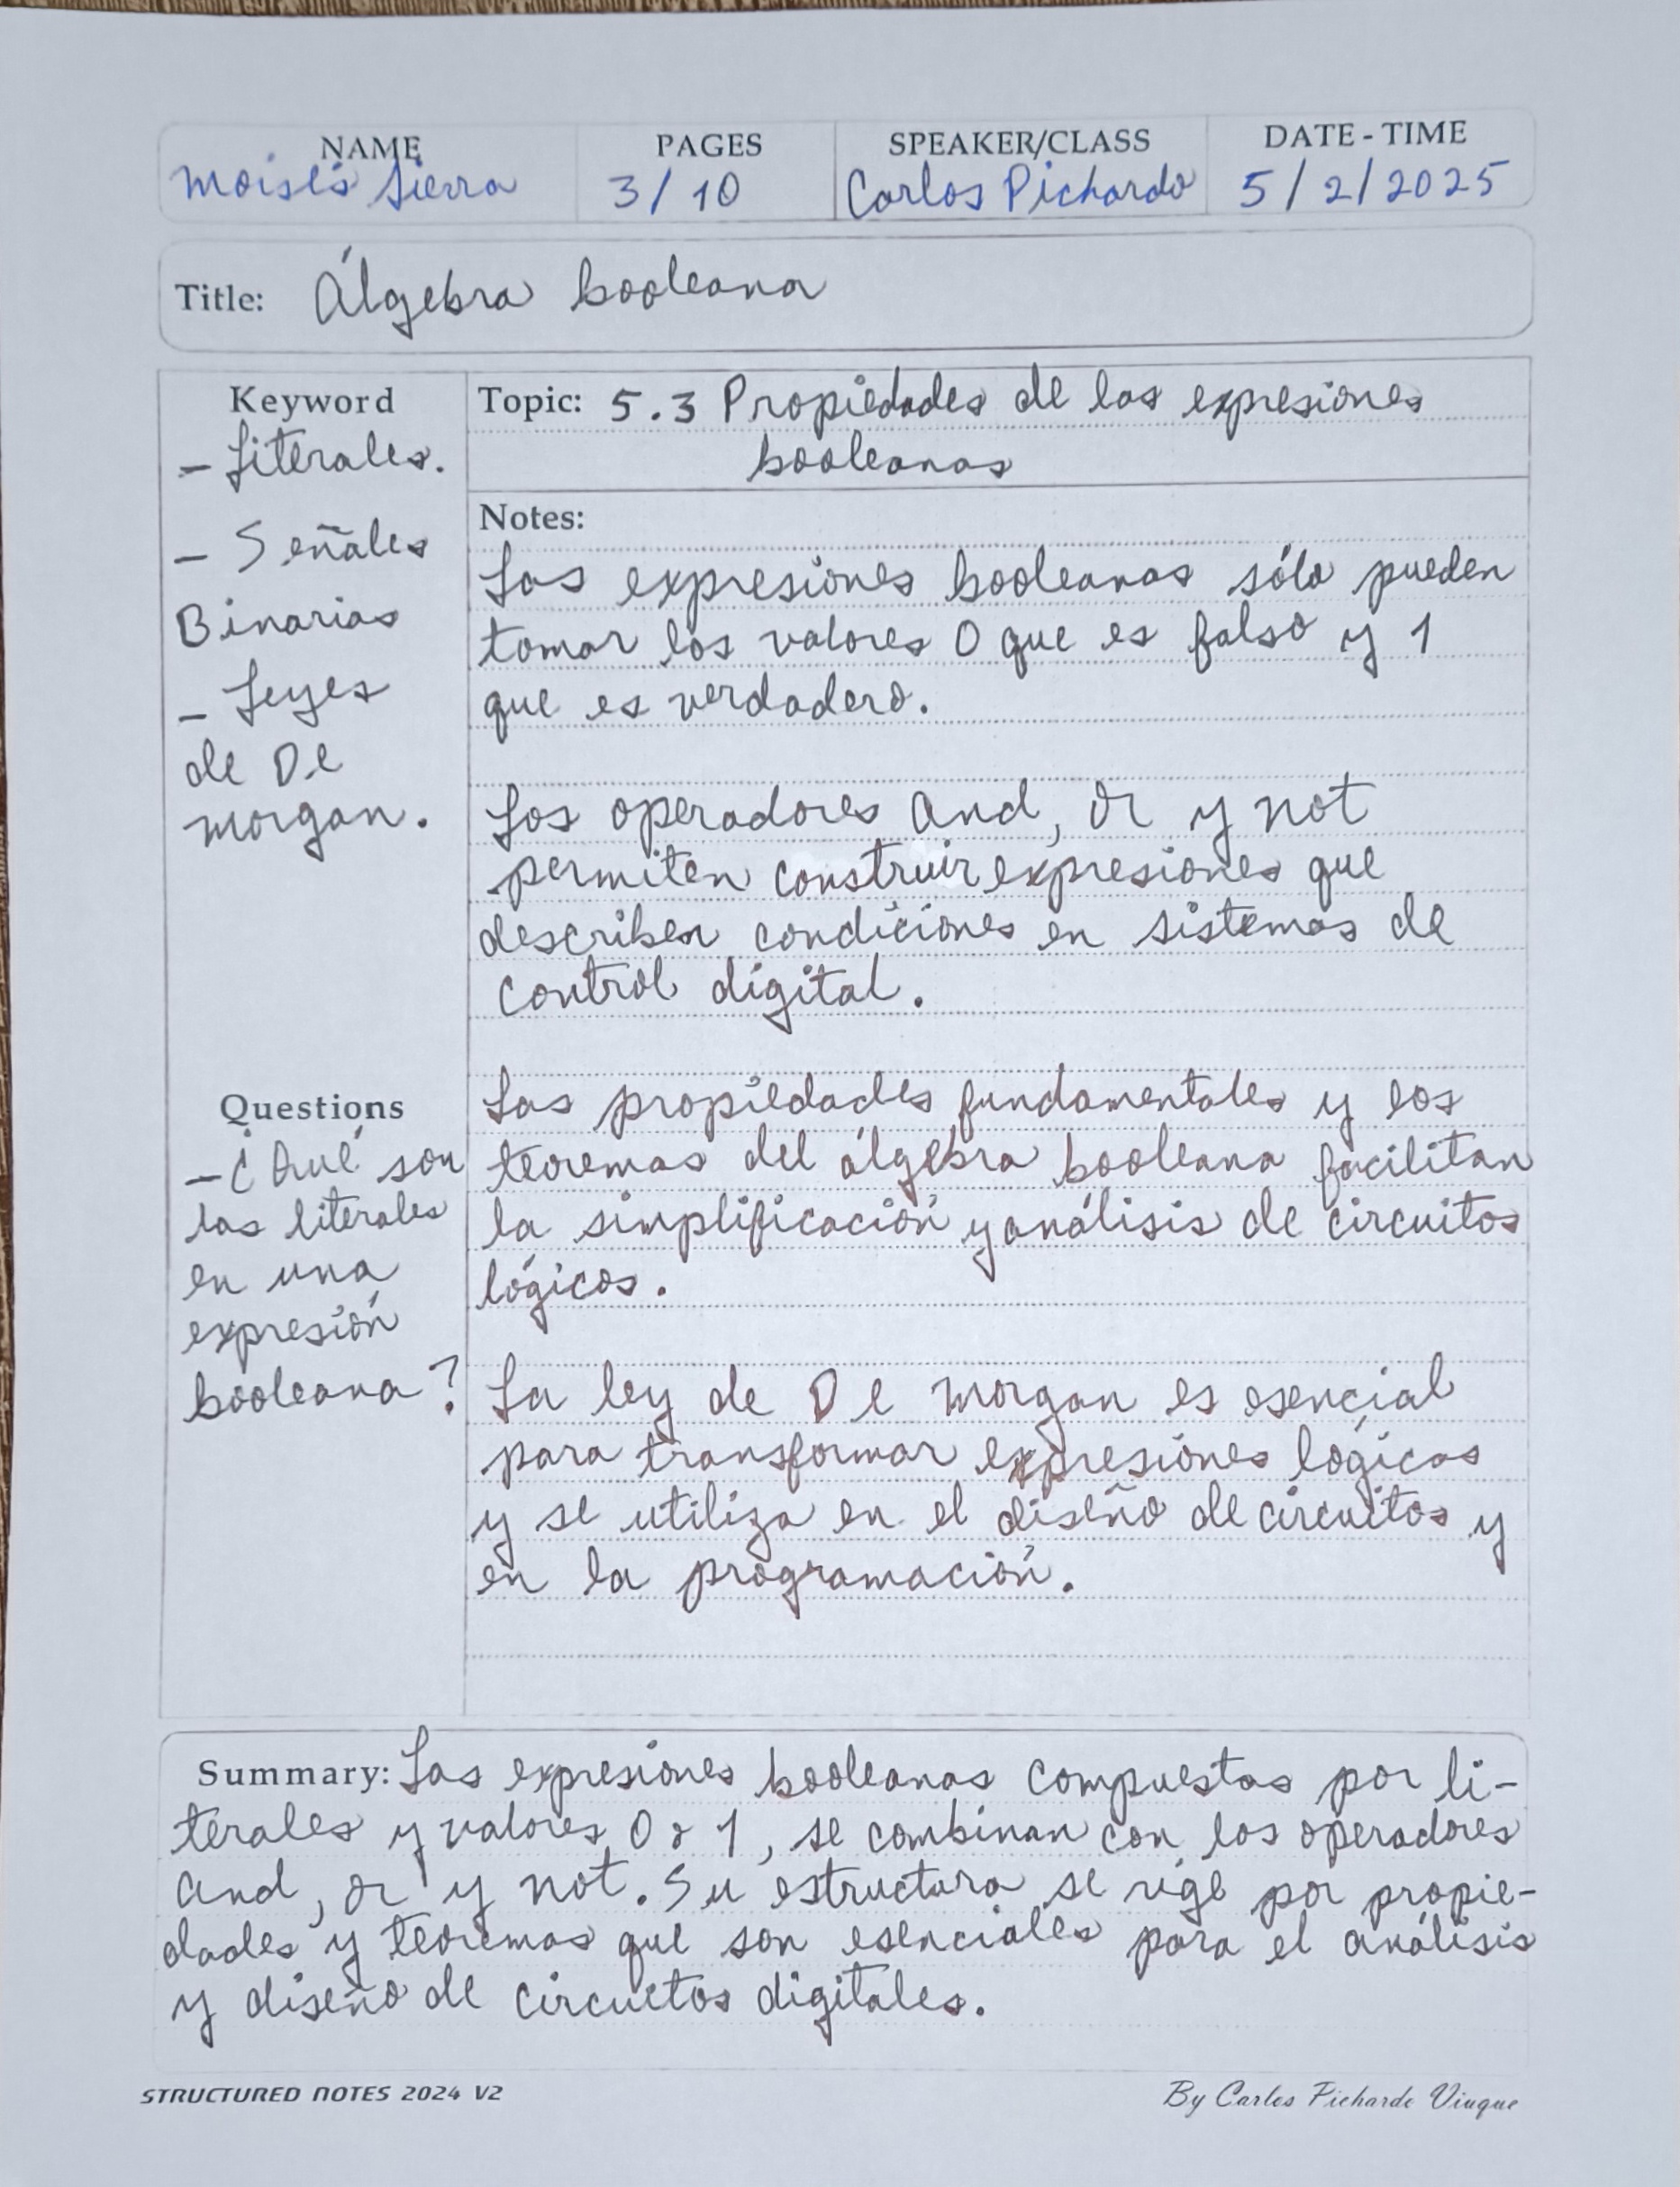 NAME PAGES SPEAKER/CLASS DATE-TIME
Moisés Sierra 3/10 Carlos Pichardo 5/2/2025
Title: Álgebra booleana
Keyword
- Literales.
- Señales
Binarias
- Leyes
de De
morgan.
Questions
- ¿Qué son
las literales
en una
expresión
booleana?
Topic: 5.3 Propiedades de las expresiones
booleanas
Notes:
Las expresiones booleanas sólo pueden
tomar los valores 0 que es falso y 1
que es verdadero.
Los operadores And, Or y not
permiten construir expresiones que
describen condiciones en sistemas de
control digital.
Las propiedades fundamentales y los
teoremas del álgebra booleana facilitan
la simplificación y análisis de circuitos
lógicos.
La ley de De morgan es esencial
para transformar expresiones lógicas
y se utiliza en el diseño de circuitos y
en la programación.
Summary: Las expresiones booleanas compuestas por li-
terales y valores 0 o 1, se combinan con los operadores
And, or y not. Su estructura se rige por propie-
dades y teoremas que son esenciales para el análisis
y diseño de circuitos digitales.
STRUCTURED NOTES 2024 V2
By Carlos Pichardo Viuque